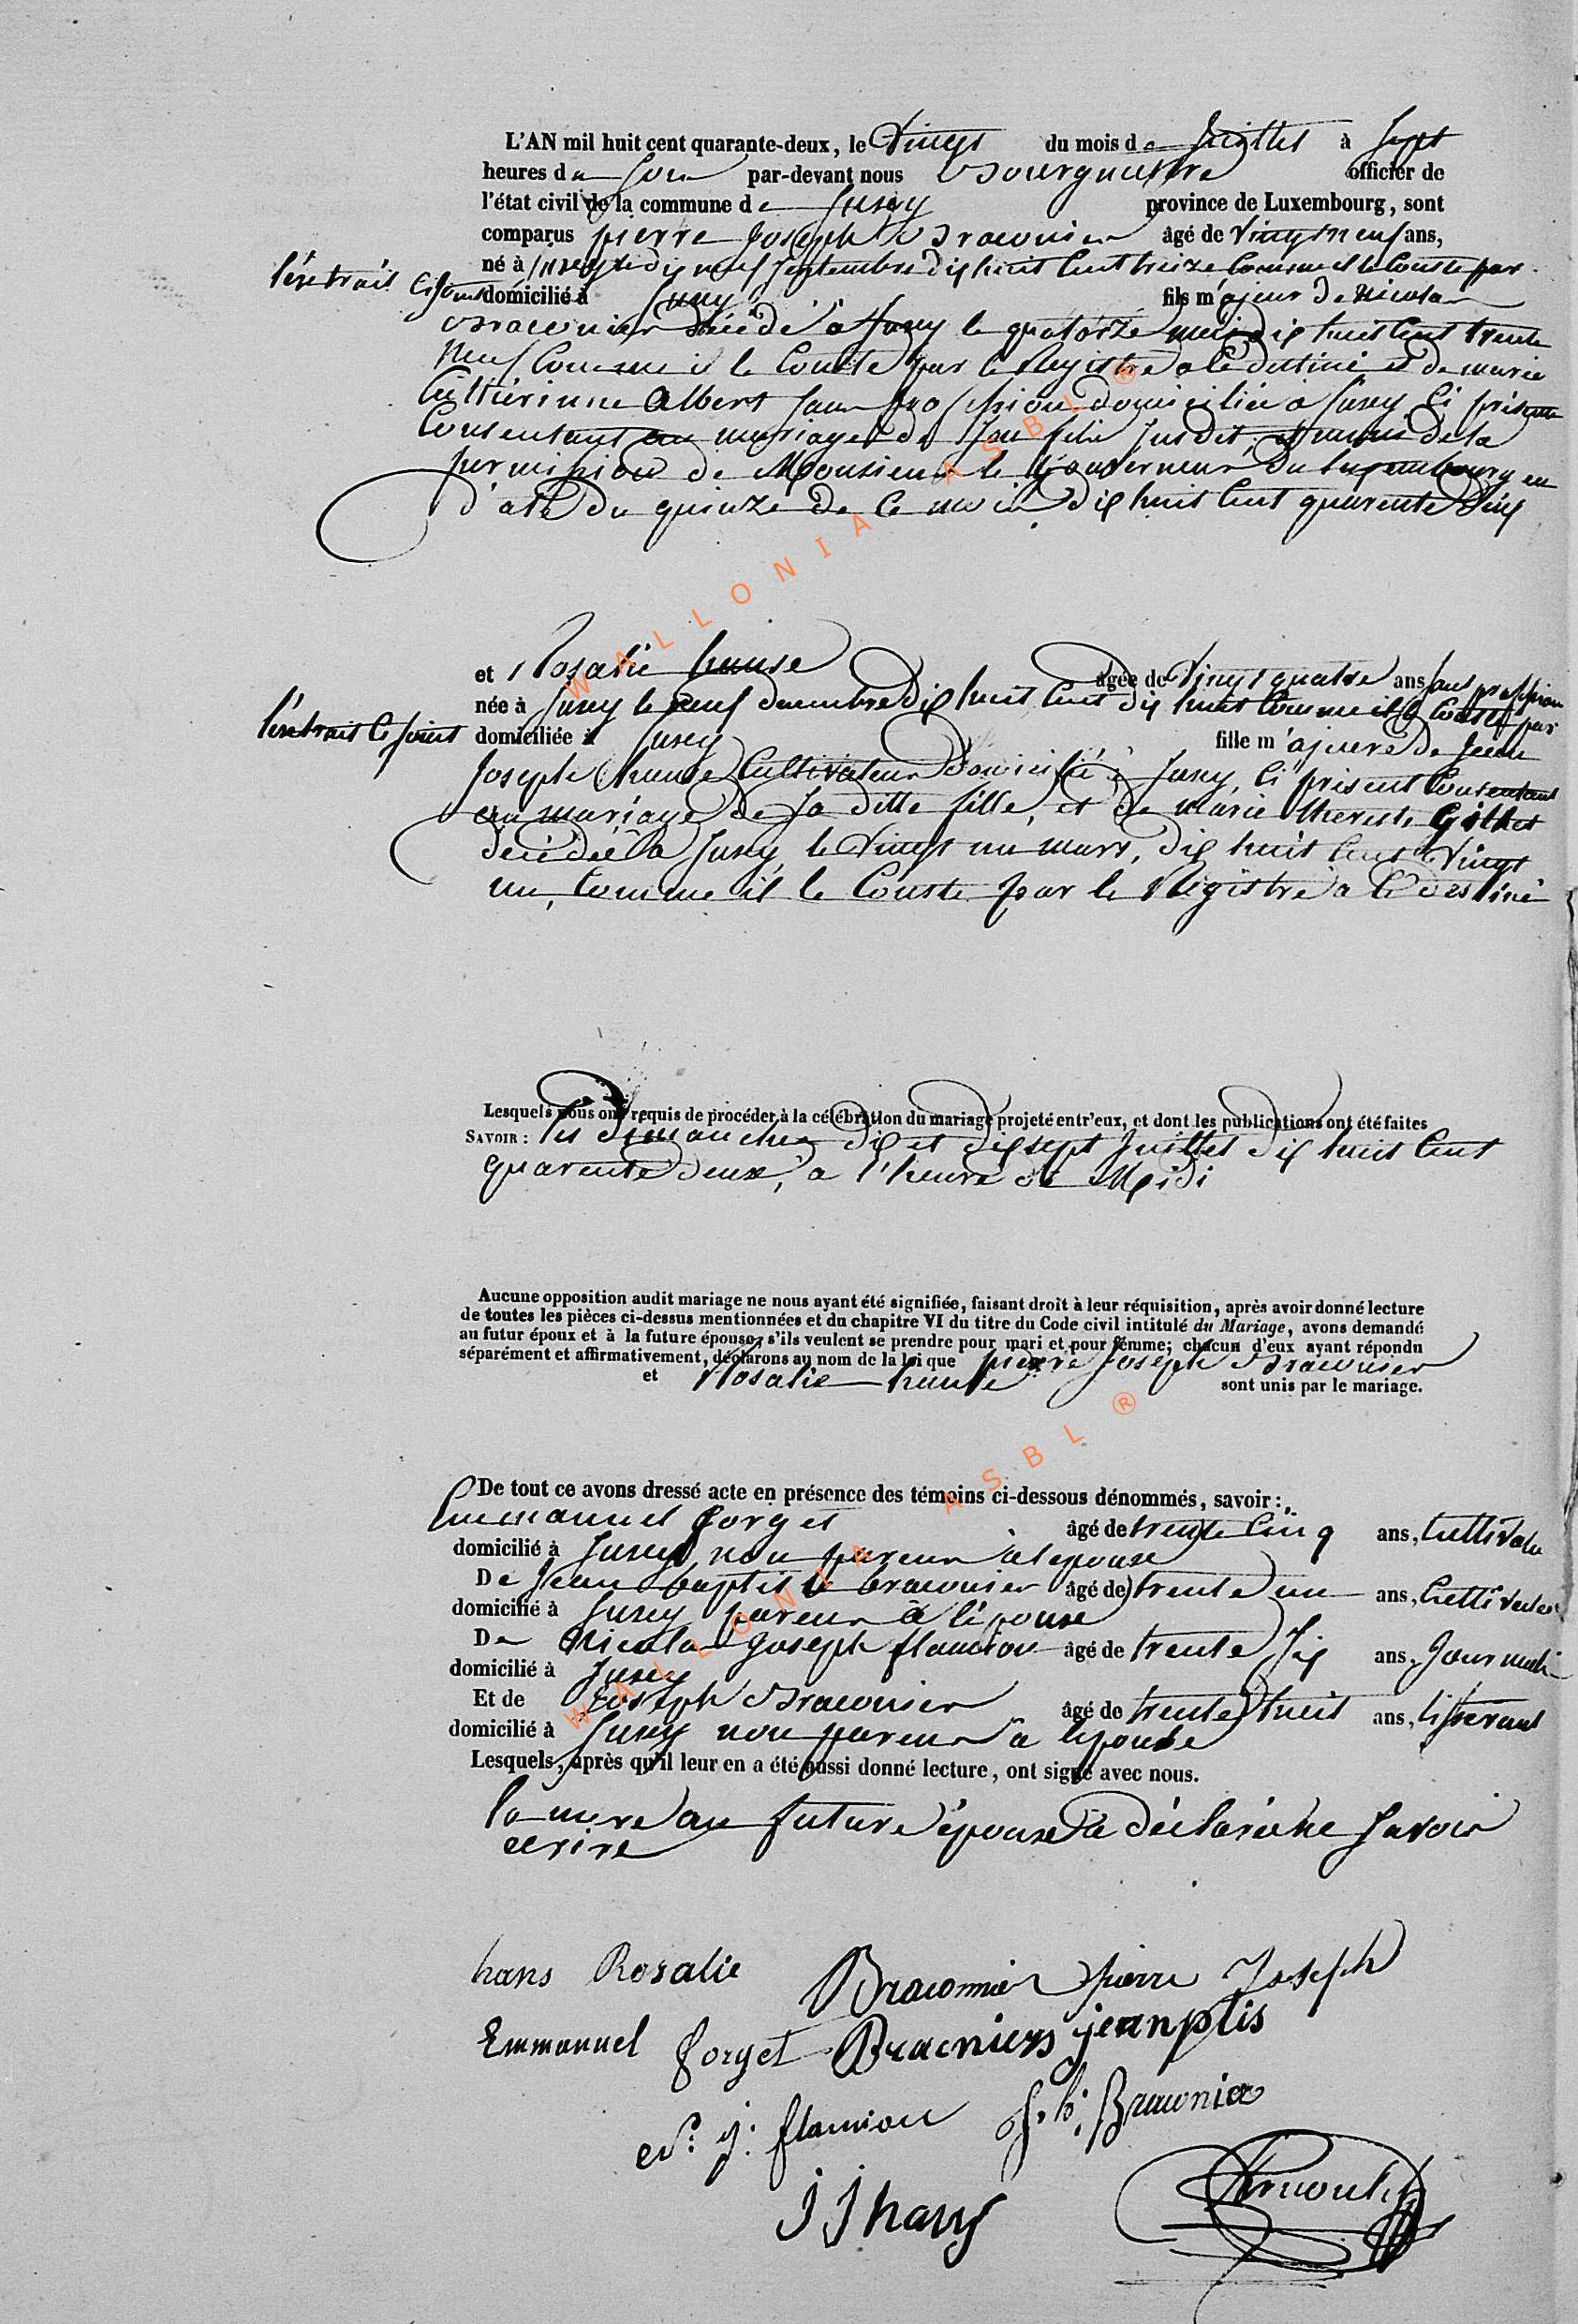 L'AN mil huit cent quarante-deux, le Vingt du mois de Juillet à Sept
heures du Soir par-devant nous Bourguemestre officier de
l'état civil de la commune de Jusey province de Luxembourg, sont
comparus pierre Joseph Braconier âgé de Vingt neuf ans,
né à Jusey le dix neuf Septembre dix huit Cent treize Comme il le Conste par
l'extrait Ci joint domicilié à Jusey fils majeur de Nicolas
Braconier décédé à Jusey le quatorze mai dix huit Cent trente
neuf Comme il le Conste par le Registre a Ce destiné et de marie
Catherinne Albert Sans profession domiciliée à Jusey Ci présente
Consentant au mariage de Son fils Susdit et munis de la
permission de Monsieur le Gouverneur du luxembourg en
date du quinze de Ce mois dix huit Cent quarente deux
et Rosalie hanse âgée de Vingt quatre ans Sans profession
née à Jusey le neuf decembre dix huit Cent dix huit Comme il le Conste par
l'extrait Ci joint domiciliée à Jusey fille majeure de Jean
Joseph hanse Cultivateur domicilié à Jusey Ci présent Consentant
au mariage de Sa ditte fille, et de marie therese Gillet
décédée à Jusey le Vingt un mars, dix huit Cent Vingt
un, Comme il le Conste par le Régistre a Ce destiné
Lesquels nous ont requis de procéder à la célébration du mariage projeté entr'eux, et dont les publications ont été faites
SAVOIR : les dimanches dix et dix sept Juillet dix huit Cent
quarente deux, a l'heure de Midi
Aucune opposition audit mariage ne nous ayant été signifiée, faisant droit à leur réquisition, après avoir donné lecture
de toutes les pièces ci-dessus mentionnées et du chapitre VI du titre du Code civil intitulé du Mariage, avons demandé
au futur époux et à la future épouse, s'ils veulent se prendre pour mari et pour femme; chacun d'eux ayant répondu
séparément et affirmativement, déclarons au nom de la loi que pierre Joseph Braconier
et Rosalie hanse sont unis par le mariage.
De tout ce avons dressé acte en présence des témoins ci-dessous dénommés, savoir :
Emmanuel forget âgé de trente Cinq ans, Cultivateur
domicilié à Jusey non parent à l'epouse
De Jean baptiste braconier âgé de trente un ans, Cultivateur
domicilié à Jusey parent à l'épouse
De Nicolas Joseph flamion âgé de trente Six ans, Journalier
domicilié à Jusey
Et de Joseph Braconier âgé de trente huit ans, tisserant
domicilié à Jusey non parent à lepouse
Lesquels, après qu'il leur en a été aussi donné lecture, ont signé avec nous.
la mere au future épouse a déclaré ne Savoir
ecrire
hans Rosalie Braconnier pierre Joseph
Emmanuel forget Bracniers jeanptis
N. j. flamion J. h. Braconier
J J hans Arnould
WALLONIA ASBL ®
WALLONIA ASBL ®